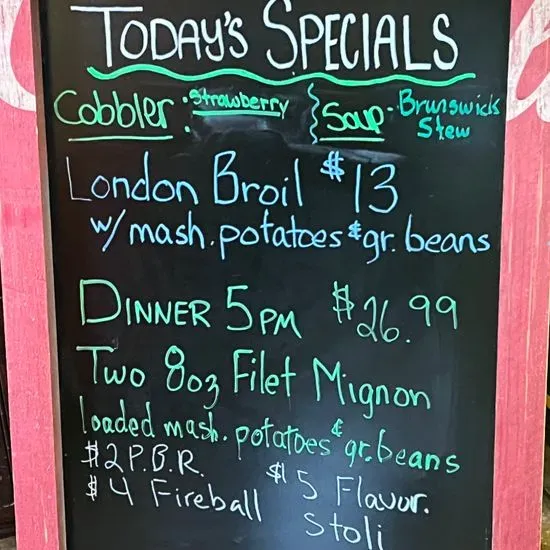 TODAY'S SPECIALS
Cobbler: Strawberry
Soup - Brunswick Stew
London Broil $13
w/ mash. potatoes & gr. beans
DINNER 5PM $26.99
Two 8oz Filet Mignon
loaded mash. potatoes & gr. beans
$2 P.B.R.
$4 Fireball
$5 Flavor.
Stoli